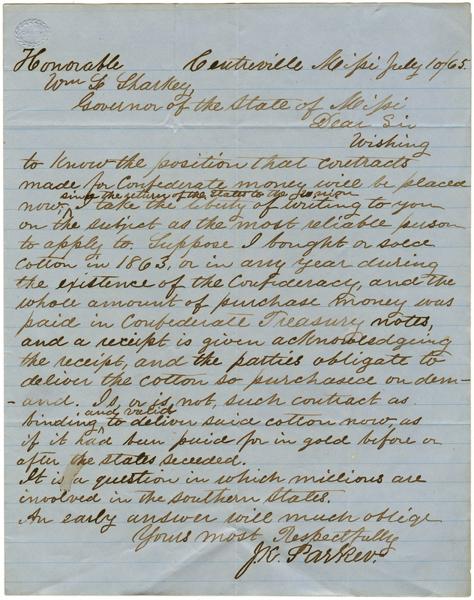 Honorable Centreville Missi July 10/65
Wm L Sharkey
Governor of the State of Missi
Dear Sir
Wishing
to know the position that contracts
made for Confederate money will be placed
since the return of the states to the
now, I take the liberty of writing to you
on the subject as the most reliable person
to apply to. Suppose I bought or sold
cotton in 1863, or in any year during
the existence of the Confederacy, and the
whole amount of purchase money was
paid in Confederate Treasury notes,
and a receipt is given acknowledging
the receipt, and the parties obligate to
deliver the cotton so purchased on dem-
-and. Is, or is not, such contract as
and valid
binding to deliver said cotton now, as
if it had been paid for in gold before or
after the states seceded.
It is a question in which millions are
involved in the southern states.
An early answer will much oblige
Yours most Respectfully
J.K. Parker.